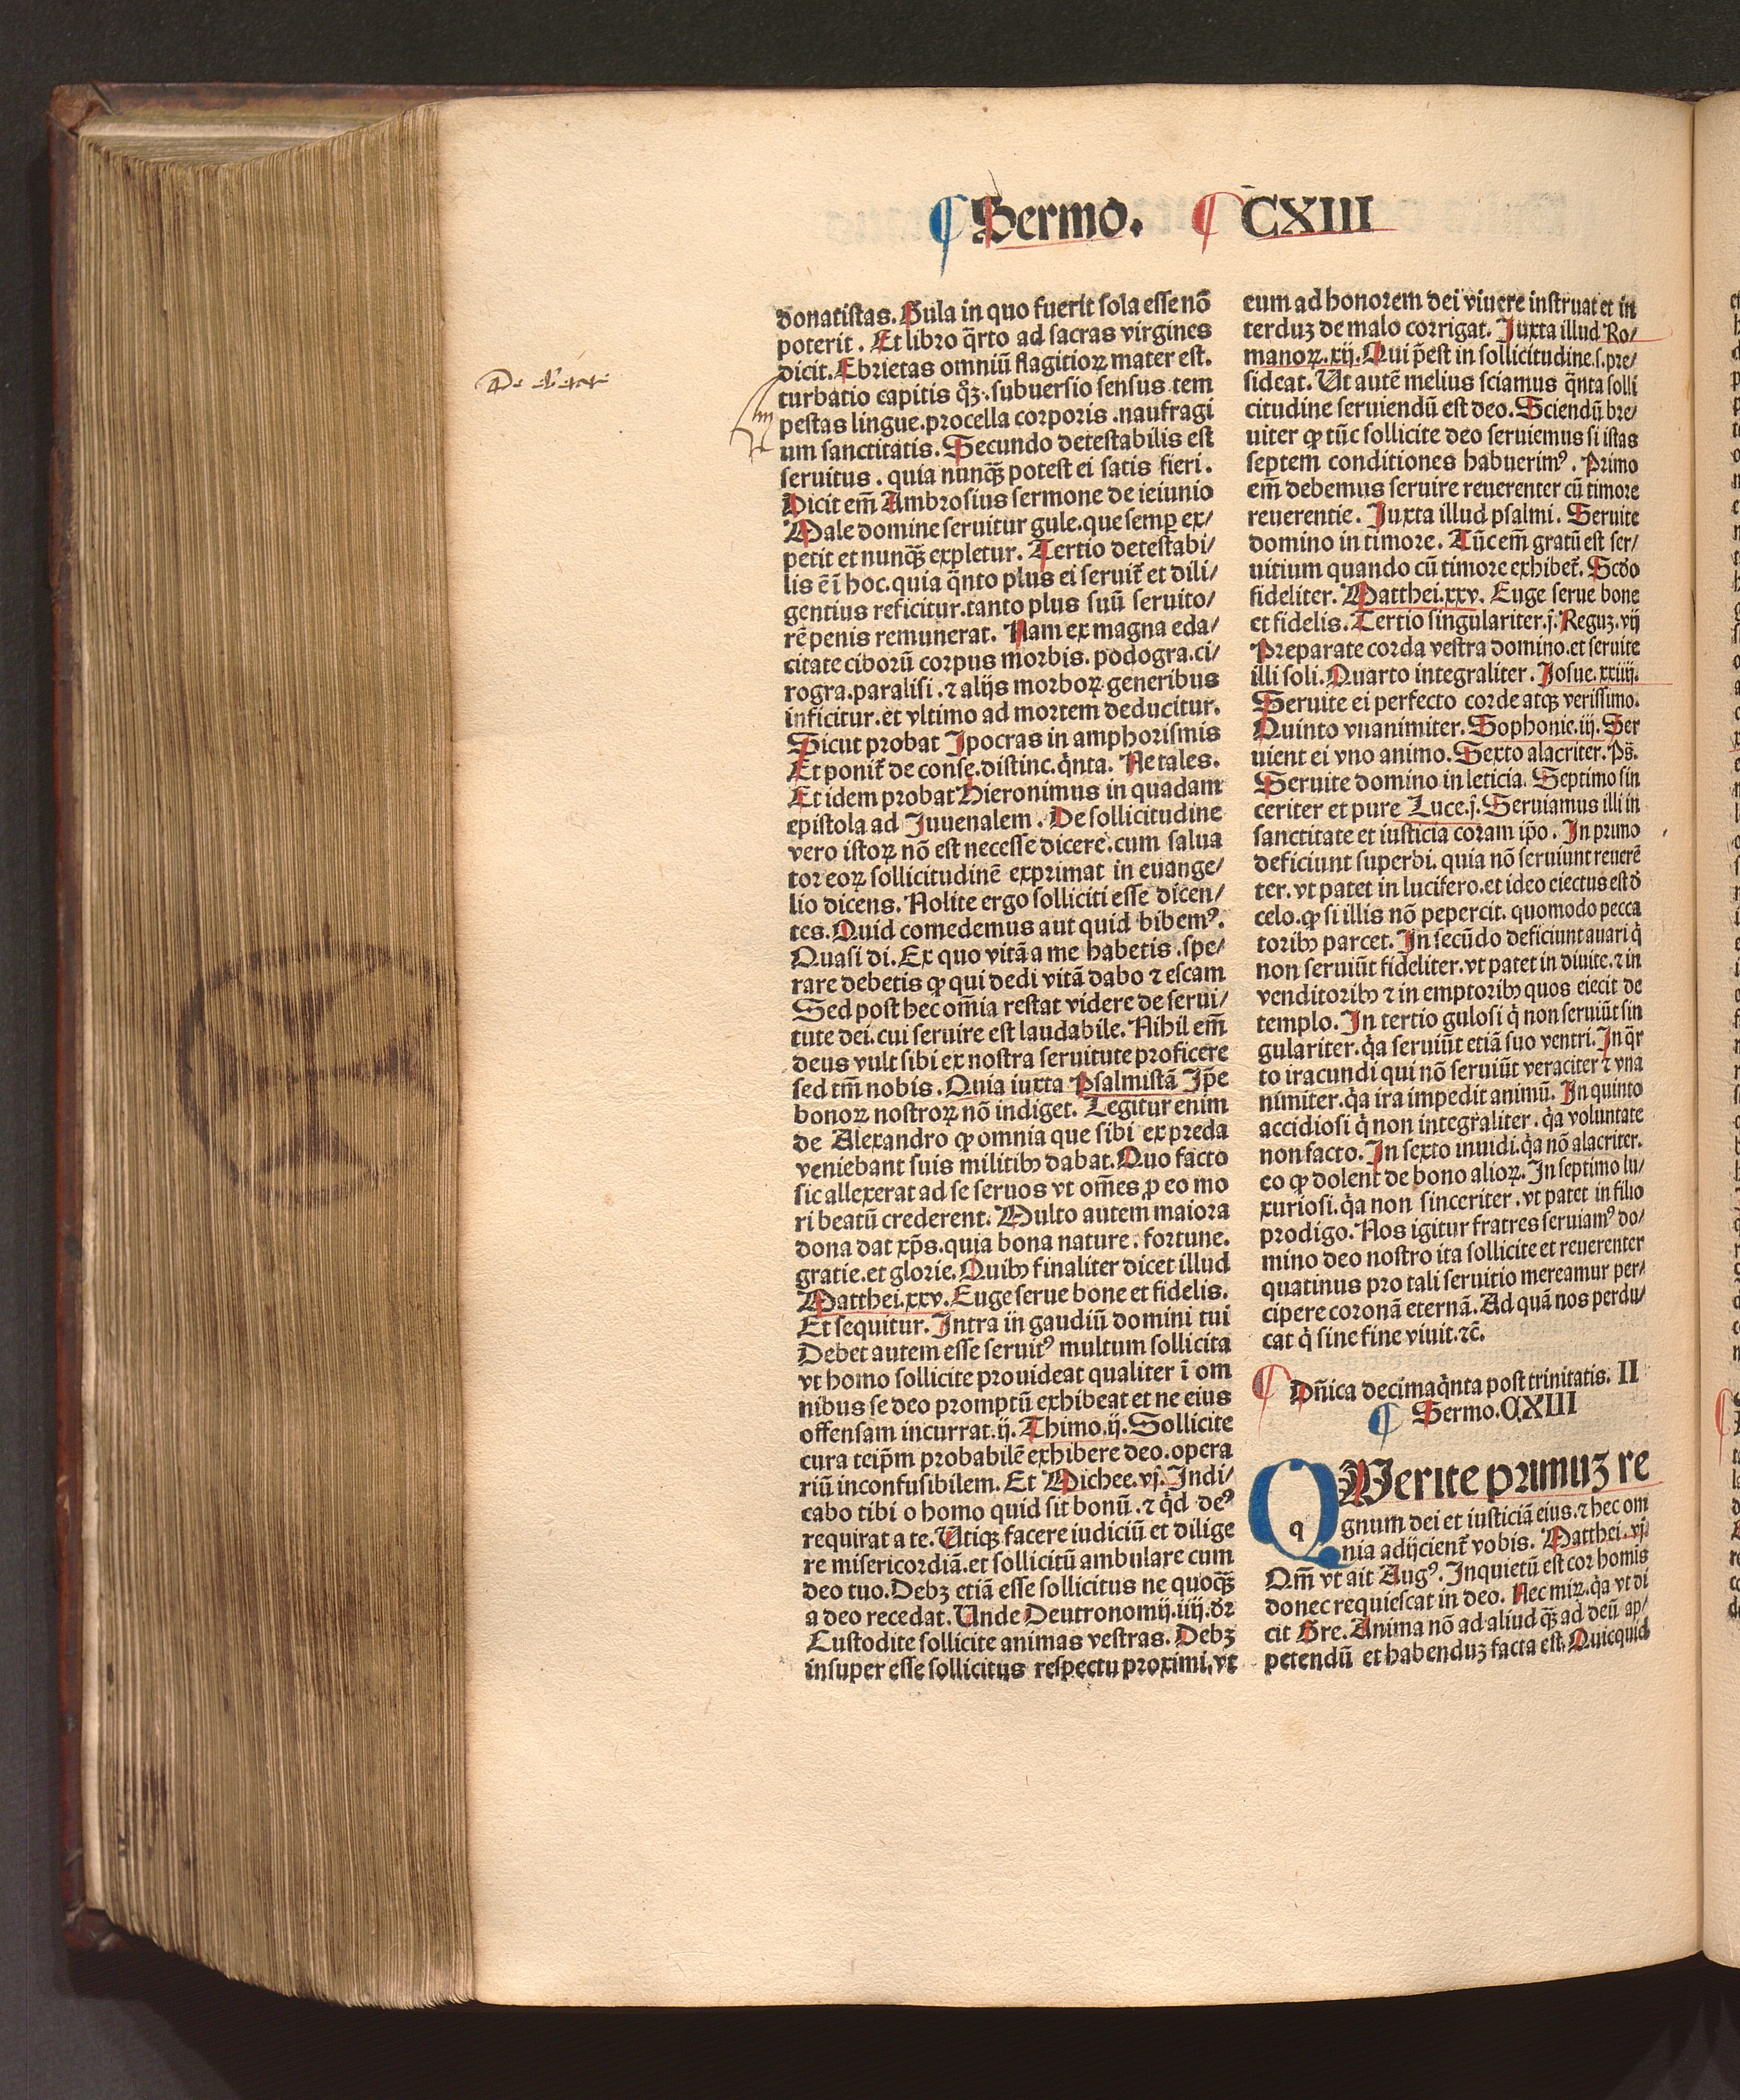 ¶ Sermo. ¶ CXIII
donatistas. Gula in quo fuerit sola esse nō
poterit. Et libro q̄rto ad sacras virgines
dicit. Ebrietas omniū flagitioꝝ mater est.
turbatio capitis qꝫ. subuersio sensus. tem
pestas lingue. procella corporis. naufragi
um sanctitatis. Secundo detestabilis est
seruitus. quia nunqꝫ potest ei satis fieri.
Dicit em̄ Ambrosius sermone de ieiunio
Male domine seruitur gule. que semꝑ ex/
petit et nunqꝫ expletur. Tertio detestabi/
lis ē ī hoc. quia q̄nto plus ei seruit᷑ et dili/
gentius reficitur. tanto plus suū seruito/
rē penis remunerat. Nam ex magna eda/
citate ciborū corpus morbis. podogra. ci/
rogra. paralisi. ⁊ alijs morboꝝ generibus
inficitur. et vltimo ad mortem deducitur.
Sicut probat Ipocras in amphorismis
Et ponit᷑ de conse. distinc. q̇nta. Ne tales.
Et idem probat Hieronimus in quadam
epistola ad Juuenalem. De sollicitudine
vero istoꝝ nō est necesse dicere. cum salua
tor eoꝝ sollicitudinē exprimat in euange/
lio dicens. Nolite ergo solliciti esse dicen/
tes. Quid comedemus aut quid bibemꝰ.
Quasi di. Ex quo vitā a me habetis. spe/
rare debetis ꝙ qui dedi vitā dabo ⁊ escam
Sed post hec om̄ia restat videre de serui/
tute dei. cui seruire est laudabile. Nihil em̄
deus vult sibi ex nostra seruitute proficere
sed tm̄ nobis. Quia iuxta Psalmistā Ip̄e
bonoꝝ nostroꝝ nō indiget. Legitur enim
de Alexandro ꝙ omnia que sibi ex preda
veniebant suis militibꝫ dabat. Quo facto
sic allexerat ad se seruos vt om̄es ꝓ eo mo
ri beatū crederent. Multo autem maiora
dona dat xp̄s. quia bona nature. fortune.
gratie. et glorie. Quibꝫ finaliter dicet illud
Matthei. xxv. Euge serue bone et fidelis.
Et sequitur. Intra in gaudiū domini tui
Debet autem esse seruitꝰ multum sollicita
vt homo sollicite prouideat qualiter ī om
nibus se deo promptū exhibeat et ne eius
offensam incurrat. ij. Thimo. ij. Sollicite
cura teip̄m probabilē exhibere deo. opera
riū inconfusibilem. Et Michee. vj. Indi/
cabo tibi o homo quid sit bonū. ⁊ q̇d deꝰ
requirat a te. Utiqꝫ facere iudiciū et dilige
re misericordiā. et sollicitū ambulare cum
deo tuo. Debꝫ etiā esse sollicitus ne quoqꝫ
a deo recedat. Unde Deutronomij. iiij. dꝛ
Custodite sollicite animas vestras. Debꝫ
insuper esse sollicitus respectu proximi. vt
eum ad honorem dei viuere instruat et in
terduꝫ de malo corrigat. Juxta illud Ro/
manoꝝ. xij. Qui p̄est in sollicitudine. s. pre/
sideat. Ut autē melius sciamus q̄nta solli
citudine seruiendū est deo. Sciendū bre/
uiter ꝙ tūc sollicite deo seruiemus si istas
septem conditiones habuerimꝰ. Primo
em̄ debemus seruire reuerenter cū timore
reuerentie. Juxta illud psalmi. Seruite
domino in timore. Tūc em̄ gratū est ser/
uitium quando cū timore exhibet᷑. Scd̄o
fideliter. Matthei. xxv. Euge serue bone
et fidelis. Tertio singulariter. j. Reguꝫ. vij
Preparate corda vestra domino. et seruite
illi soli. Quarto integraliter. Josue. xxiiij.
Seruite ei perfecto corde atqꝫ verissimo.
Quinto vnanimiter. Sophonie. iij. Ser
uient ei vno animo. Sexto alacriter. Ps̄.
Seruite domino in leticia. Septimo sin
ceriter et pure Luce. j. Seruiamus illi in
sanctitate et iusticia coram ip̄o. In primo
deficiunt superbi. quia nō seruiunt reuerē
ter. vt patet in lucifero. et ideo eiectus est ď
celo. ꝙ si illis nō pepercit. quomodo pecca
toribꝫ parcet. In secūdo deficiunt auari q̇
non seruiūt fideliter. vt patet in diuite. ⁊ in
venditoribꝫ ⁊ in emptoribꝫ quos eiecit de
templo. In tertio gulosi q̇ non seruiūt sin
gulariter. q̇a seruiūt etiā suo ventri. In q̄r
to iracundi qui nō seruiūt veraciter ⁊ vna
nimiter. q̇a ira impedit animū. In quinto
accidiosi q̇ non integraliter. q̇a voluntate
non facto. In sexto inuidi. q̇a nō alacriter.
eo ꝙ dolent de bono alioꝝ. In septimo lu/
xuriosi. q̇a non sinceriter. vt patet in filio
prodigo. Nos igitur fratres seruiamꝰ do/
mino deo nostro ita sollicite et reuerenter
quatinus pro tali seruitio mereamur per/
cipere coronā eternā. Ad quā nos perdu/
cat q̇ sine fine viuit. ⁊c̄.
¶ Dn̄ica decimaq̇nta post trinitatis. II
¶ Sermo. CXIII
QUerite primuꝫ re
gnum dei et iusticiā eius. ⁊ hec om
nia adijcient᷑ vobis. Matthei. vj.
Qm̄ vt ait Augꝰ. Inquietū est cor homis
donec requiescat in deo. Nec miꝝ. q̇a vt di
cit Gre. Anima nō ad aliud qꝫ ad deū ap/
petendū et habenduꝫ facta est. Quicquid